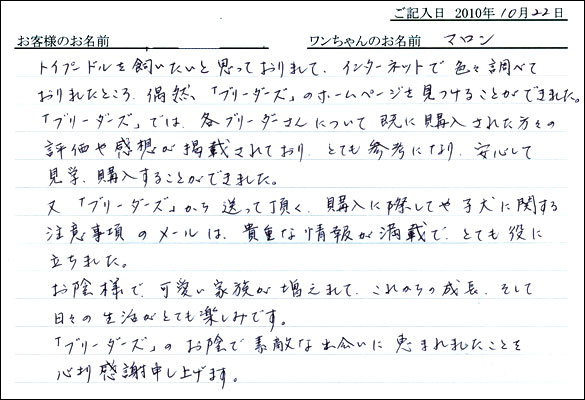 ご記入日 2010年10月22日
お客様のお名前 ワンちゃんのお名前 マロン
トイプードルを飼いたいと思っておりまして、インターネットで色々調べて
おりましたところ、偶然、「ブリーダーズ」のホームページを見つけることができました。
「ブリーダーズ」では、各ブリーダーさんについて既に購入された方々の
評価や感想が掲載されており、とても参考になり、安心して
見学、購入することができました。
又「ブリーダーズ」から送って頂く、購入に際してや子犬に関する
注意事項のメールは、貴重な情報が満載で、とても役に
立ちました。
お陰様で、可愛い家族が増えまして、これからの成長、そして
日々の生活がとても楽しみです。
「ブリーダーズ」のお陰で素敵な出会いに恵まれましたことを
心より感謝申し上げます。